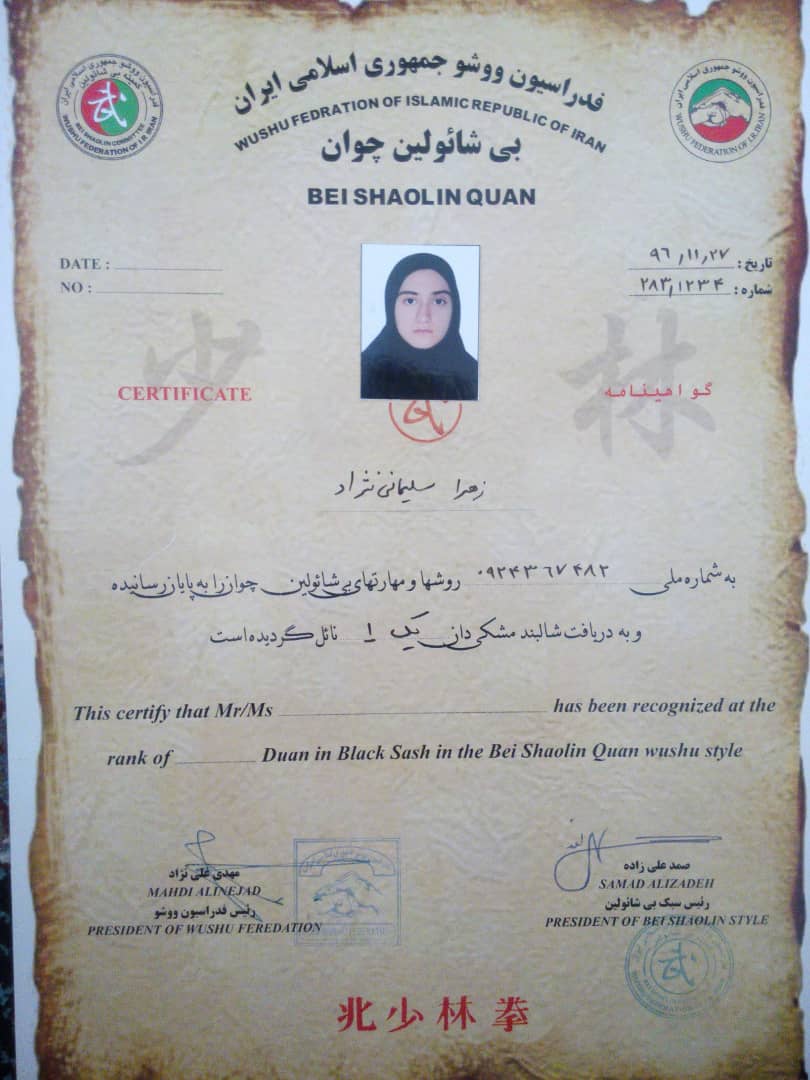 فدراسیون ووشو جمهوری اسلامی ایران
WUSHU FEDRATION OF ISLAMIC REPUBLIC OF IRAN
بی شائولین چوان
BEI SHAOLIN QUAN
فدراسیون ووشو جمهوری اسلامی ایران
کمیته بی شائولین
BEI SHAOLIN COMMITTEE
WUSHU FEDERATION OF I.R.IRAN
فدراسیون ووشو جمهوری اسلامی ایران
WUSHU FEDERATION OF I.R.IRAN
DATE :
NO :
تاریخ : ۹۶/۱۱/۲۷
شماره : ۲۸۳/۱۲۳۴
少林
CERTIFICATE
گواهینامه
زهرا سلیمانی نژاد
به شماره ملی ۰۹۲۴۳۶۷۴۸۲ روشها و مهارتهای بی شائولین چوان را به پایان رسانیده
و به دریافت شالبند مشکی دان یک ۱ نائل گردیده است
This certify that Mr/Ms has been recognized at the
rank of Duan in Black Sash in the Bei Shaolin Quan wushu style
مهدی علی نژاد
MAHDI ALINEJAD
رئیس فدراسیون ووشو
PRESIDENT OF WUSHU FEREDATION
صمد علی زاده
SAMAD ALIZADEH
رئیس سبک بی شائولین
PRESIDENT OF BEI SHAOLIN STYLE
北少林拳